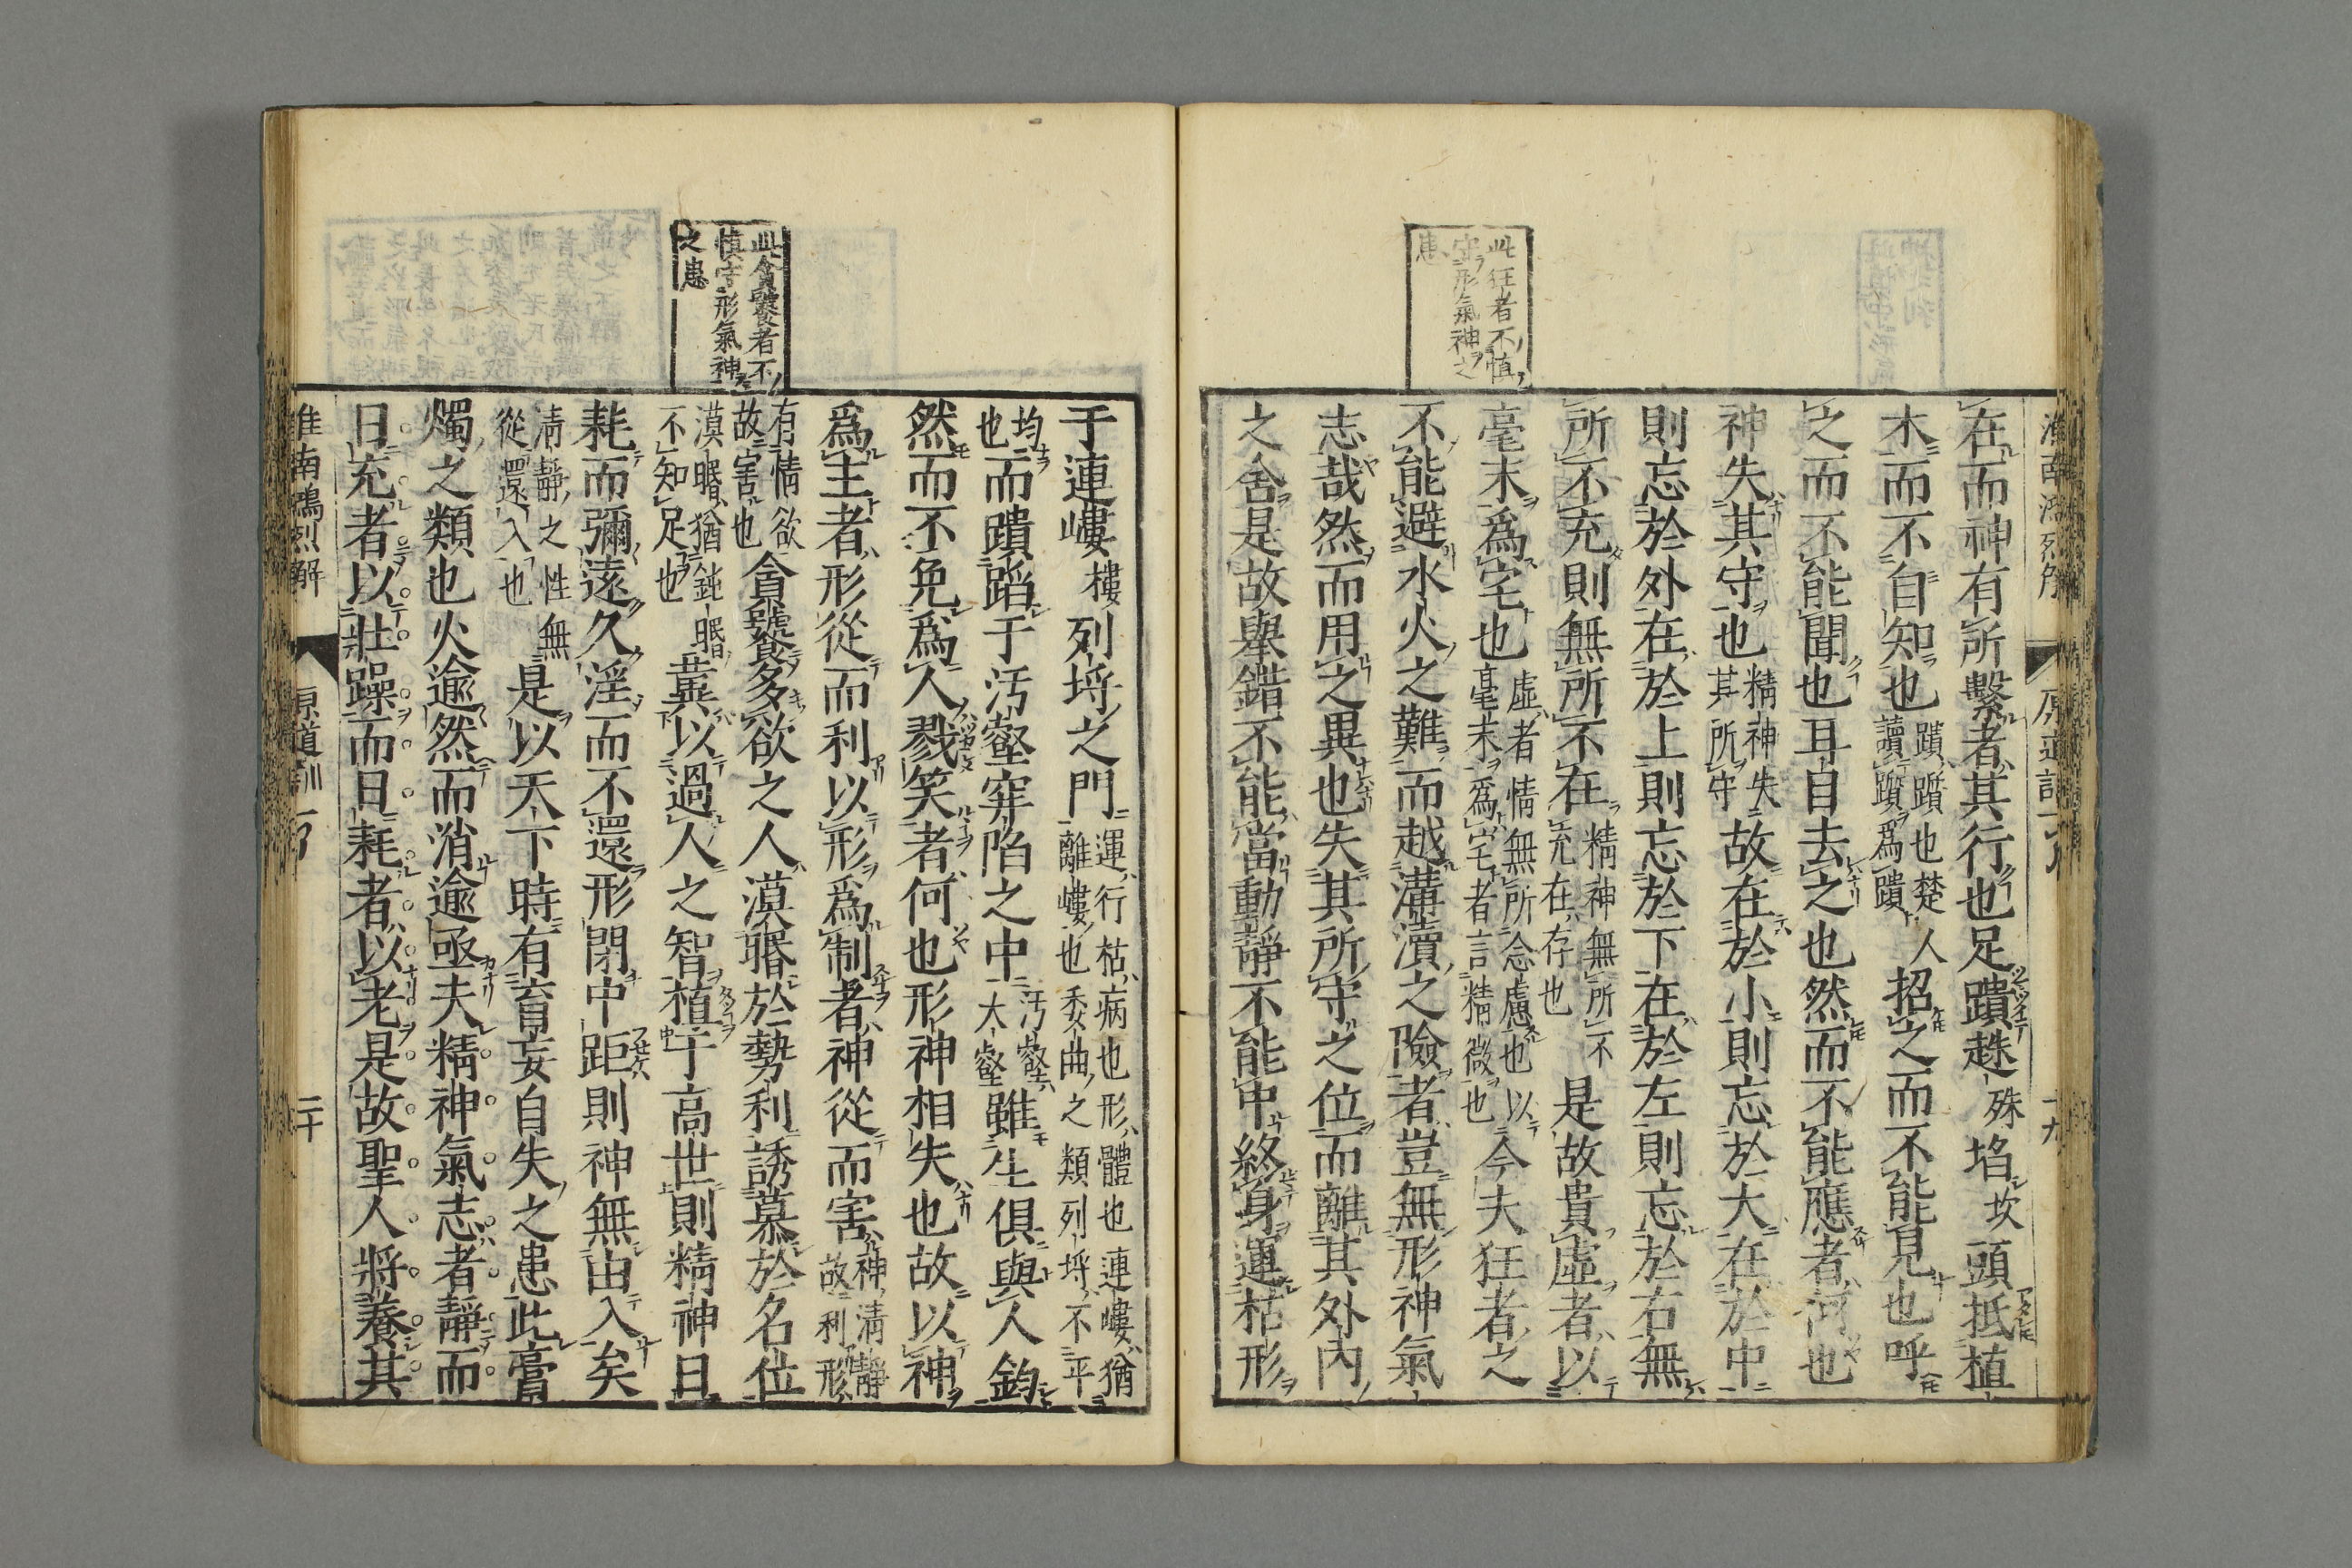 淮南鴻烈解
原道訓
十九
此狂者不慎
守形氣神之
患
在而神有所繫者其行也足蹪趎殊埳坎頭抵植
木而不自知也蹪躓也楚人讀躓爲蹪招之而不能見也呼
之而不能聞也耳目去之也然而不能應者何也
神失其守也精神失其所守故在於小則忘於大在於中
則忘於外在於上則忘於下在於左則忘於右無
所不充則無所不在精神無所不充在存也是故貴虛者以
毫末爲宅也虛者情無所念慮也以毫末爲宅者言精微也今夫狂者之
不能避水火之難而越溝瀆之險者豈無形神氣
志哉然而用之異也失其所守之位而離其外內
之舍是故舉錯不能當動靜不能中終身運枯形
此貪饕者不
慎守形氣神
之患
于連嶁樓列埒之門運行枯病也形體也連嶁猶離嶁也委曲之類列埒不平
均也而蹪蹈于污壑穽陷之中污壑大壑雖生俱與人鈞
然而不免爲人戮笑者何也形神相失也故以神
爲主者形從而利以形爲制者神從而害神清靜故利形
有情欲故害也貪饕多欲之人漠睧於勢利誘慕於名位
漠睧猶鈍睧不知足也冀以過人之智植于高世則精神日
耗而彌遠久淫而不還形閉中距則神無由入矣
清靜之性無從還入也是以天下時有盲妄自失之患此膏
燭之類也火逾然而消逾亟夫精神氣志者靜而
日充者以壯躁而日耗者以老是故聖人將養其
淮南鴻烈解
原道訓
二十